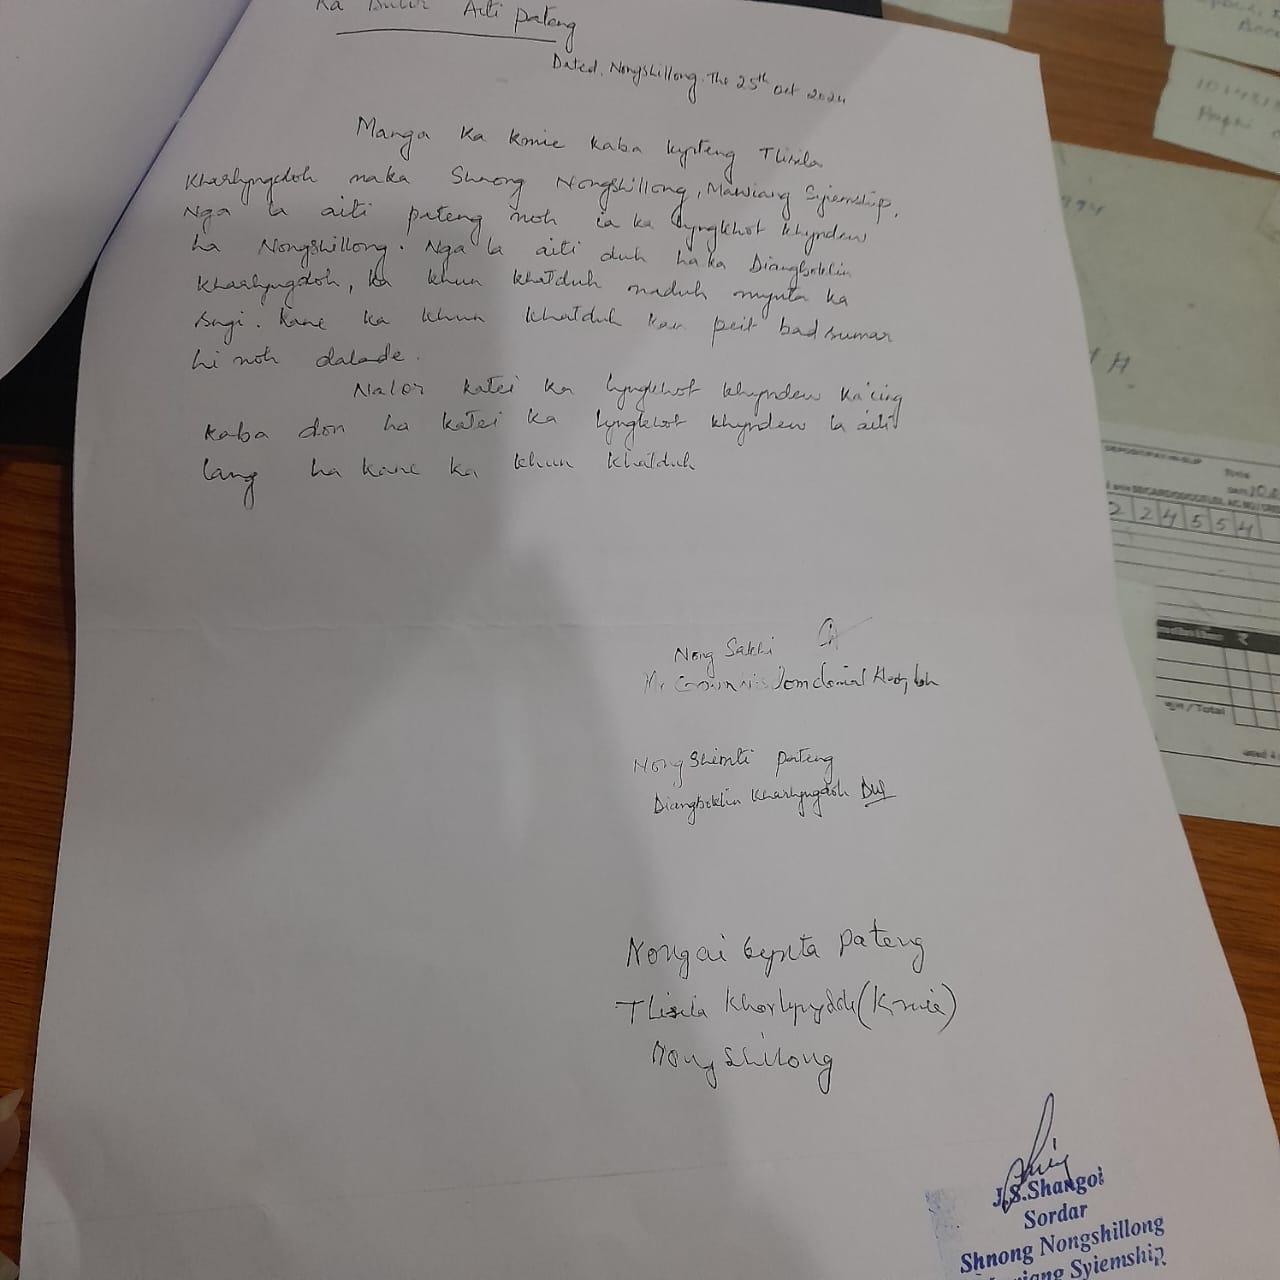 Ka Aiti pateng
Dated, Nongshillong. The 25th Oct 2024
Manga Ka Kmie kaba kyrteng Tlisila
Kharlyngdoh naka Shnong Nongshillong, Mawiang Syiemship,
Nga la aiti pateng noh ia ka lyngkhot khyndew
ha Nongshillong. Nga la aiti duh ha ka Diangboklin
Kharlyngdoh, ka khun khatduh naduh mynta ka
sngi. Kane ka khun khatduh kan peit bad sumar
hi noh dalade.
Nalor katei ka lyngkhot khyndew ka ïing
kaba don ha katei ka lyngkhot khyndew la aiti
lang ha kane ka khun khatduh
Nong Sakhi
Mr
Nongshimti pateng
Diangboklin Kharlyngdoh
Nongai pateng
Tlisila Kharlyngdoh (Kmie)
Nongshillong
J.S.Shangoi
Sordar
Shnong Nongshillong
Syiemship
2 2 4 5 5 4
/ Total